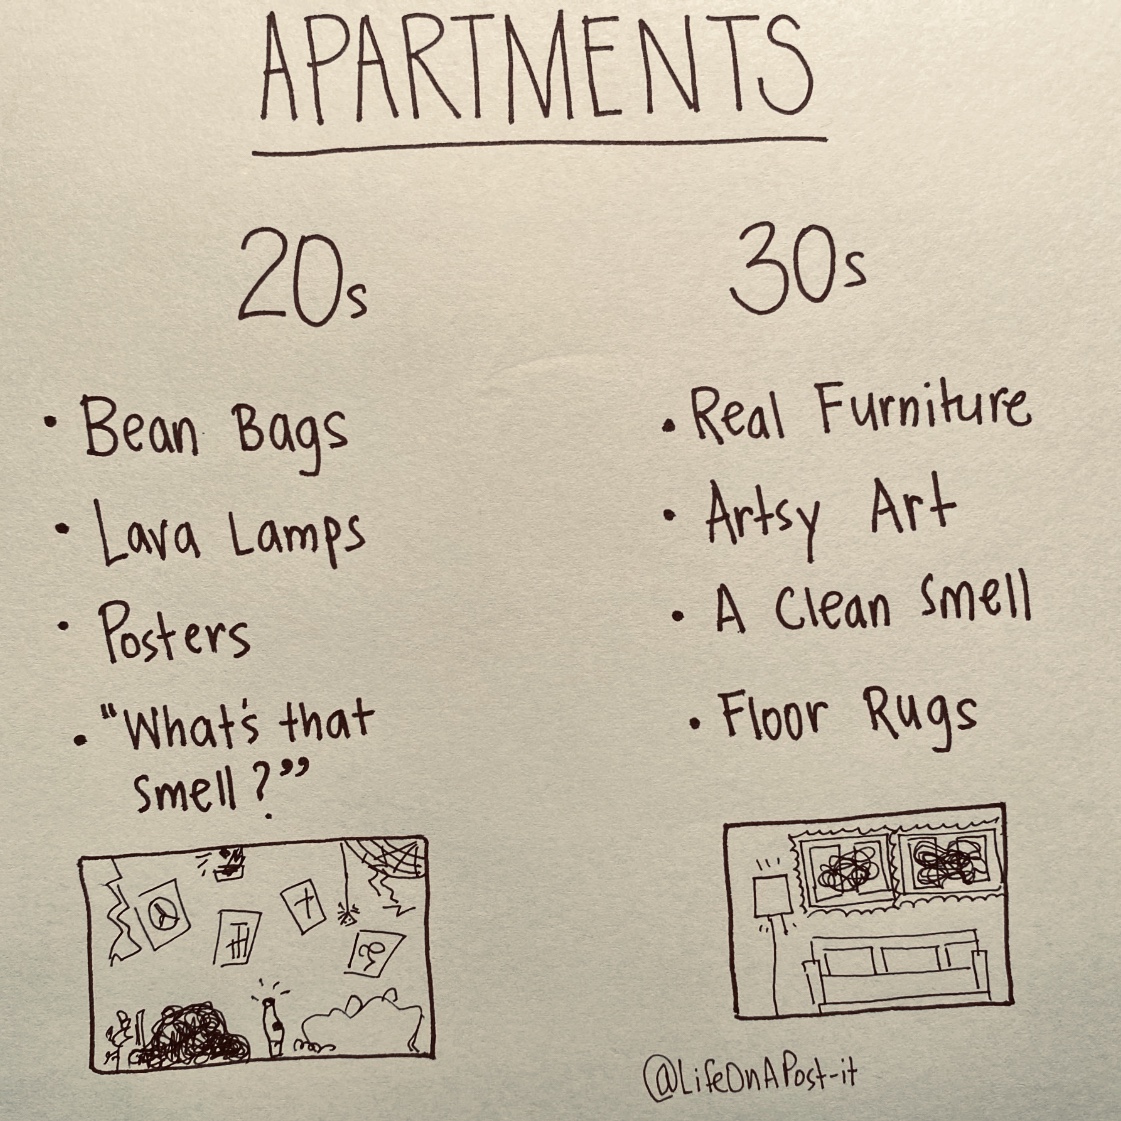 APARTMENTS
20s
• Bean Bags
• Lava Lamps
• Posters
• "What's that
smell?"
30s
• Real Furniture
• Artsy Art
• A Clean Smell
• Floor Rugs
@LifeOnAPost-it